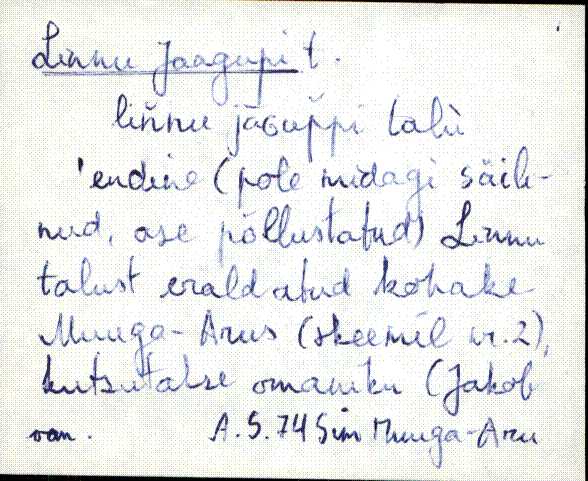 Linnu Jaagupi t.
liñnu jaGup̆pi talù
'endine (pole midagi säili-
nud, ase põllustatud) Linnu
talust eraldatud kohake
Muuga-Arus (skeemil nr. 2),
kutsutakse omaniku (Jakob
van. A.S. 74 Sim Muuga-Aru